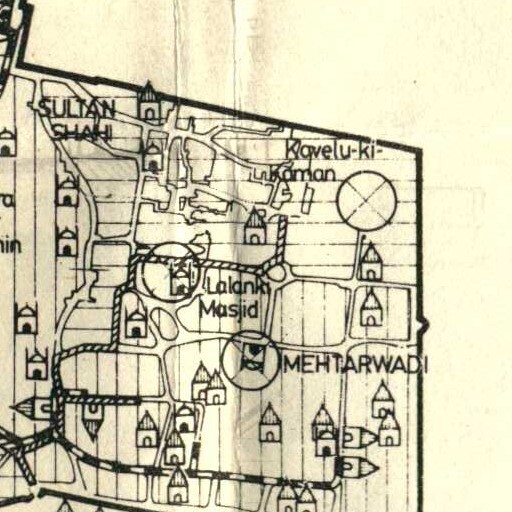 SULTAN
SHAHI
Kavelu-ki-
Kaman
ra
nin
Lalanki
Masjid
MEHTARWADI